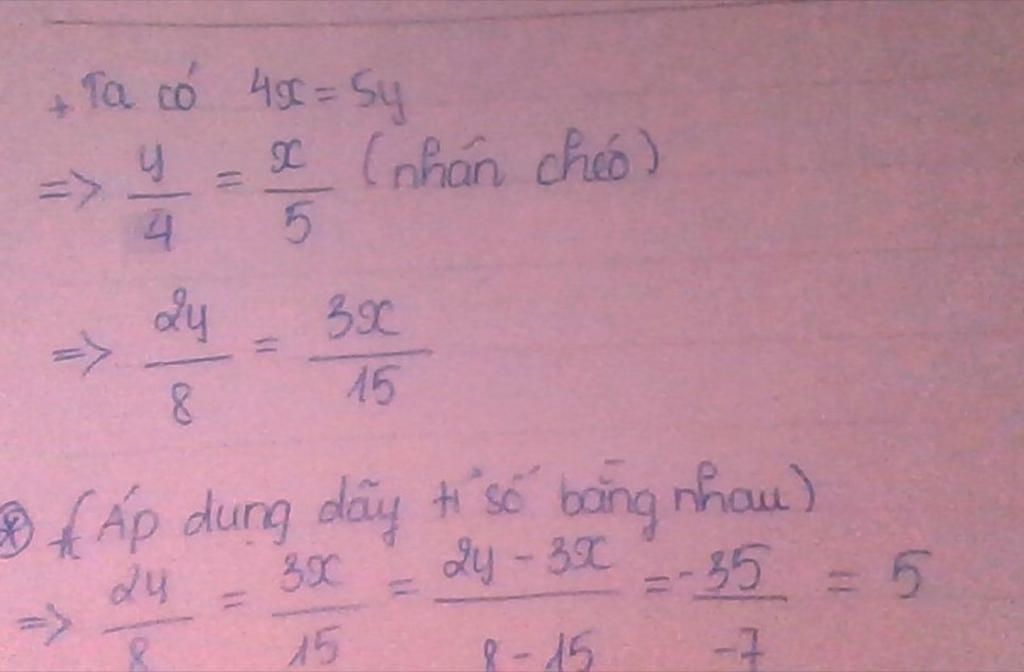 + Ta có 4x = 5y
=> y/4 = x/5 (nhân chéo)
=> 2y/8 = 3x/15
⊛ (Áp dụng dãy tỉ số bằng nhau)
=> 2y/8 = 3x/15 = 2y - 3x/8 - 15 = -35/-7 = 5